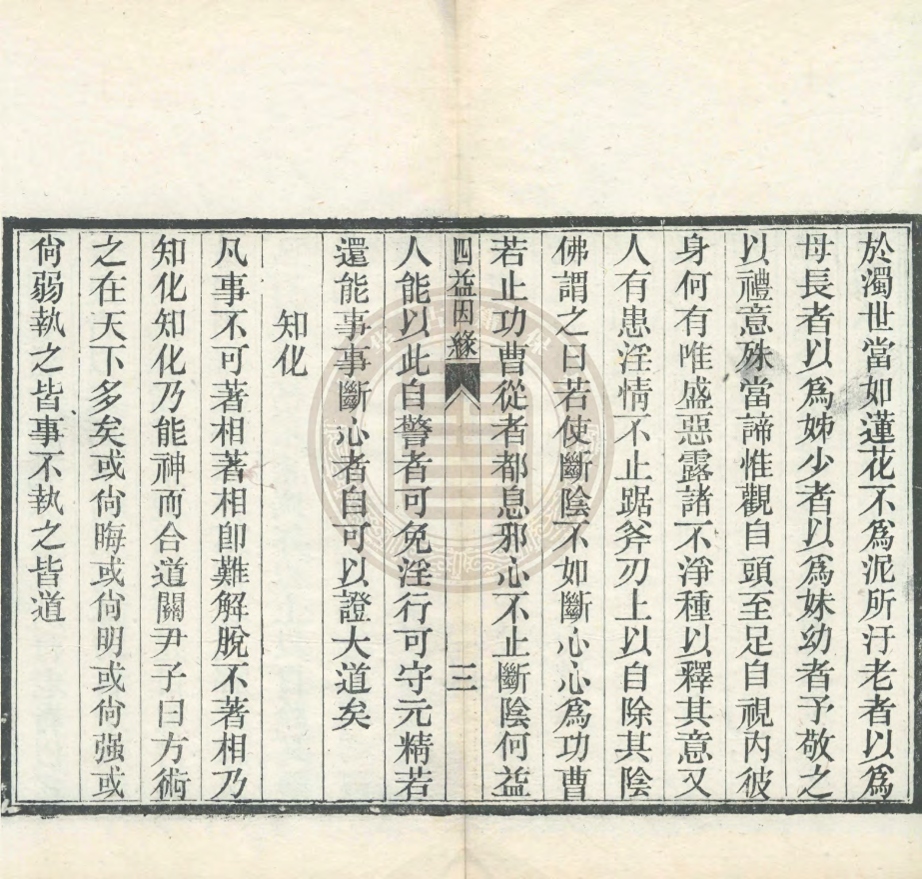 於濁世當如蓮花不爲泥所汙老者以爲
母長者以爲姊少者以爲妹幼者予敬之
以禮意殊當諦惟觀自頭至足自視內彼
身何有唯盛惡露諸不淨種以釋其意又
人有患淫情不止踞斧刃上以自除其陰
佛謂之曰若使斷陰不如斷心心爲功曹
若止功曹從者都息邪心不止斷陰何益
四益因緣 三
人能以此自警者可免淫行可守元精若
還能事事斷心者自可以證大道矣
知化
凡事不可著相著相卽難解脫不著相乃
知化知化乃能神而合道關尹子曰方術
之在天下多矣或尙晦或尙明或尙强或
尙弱執之皆事不執之皆道